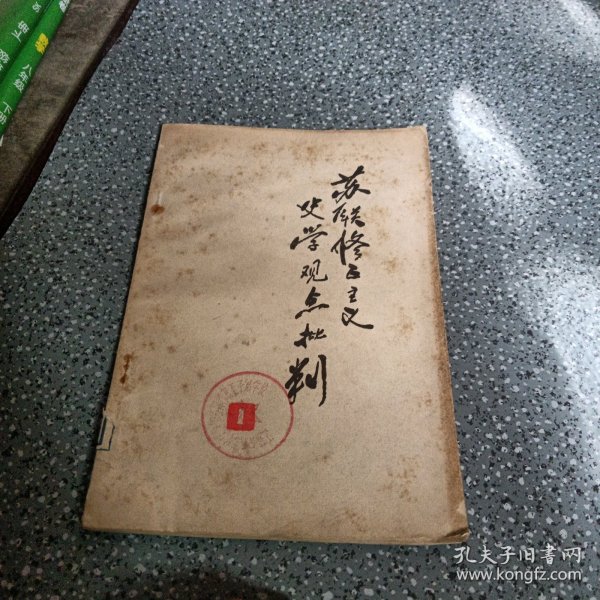 苏联修正主义
史学观点批判
1
八年级 下册
孔夫子旧书网
www.kongfz.com